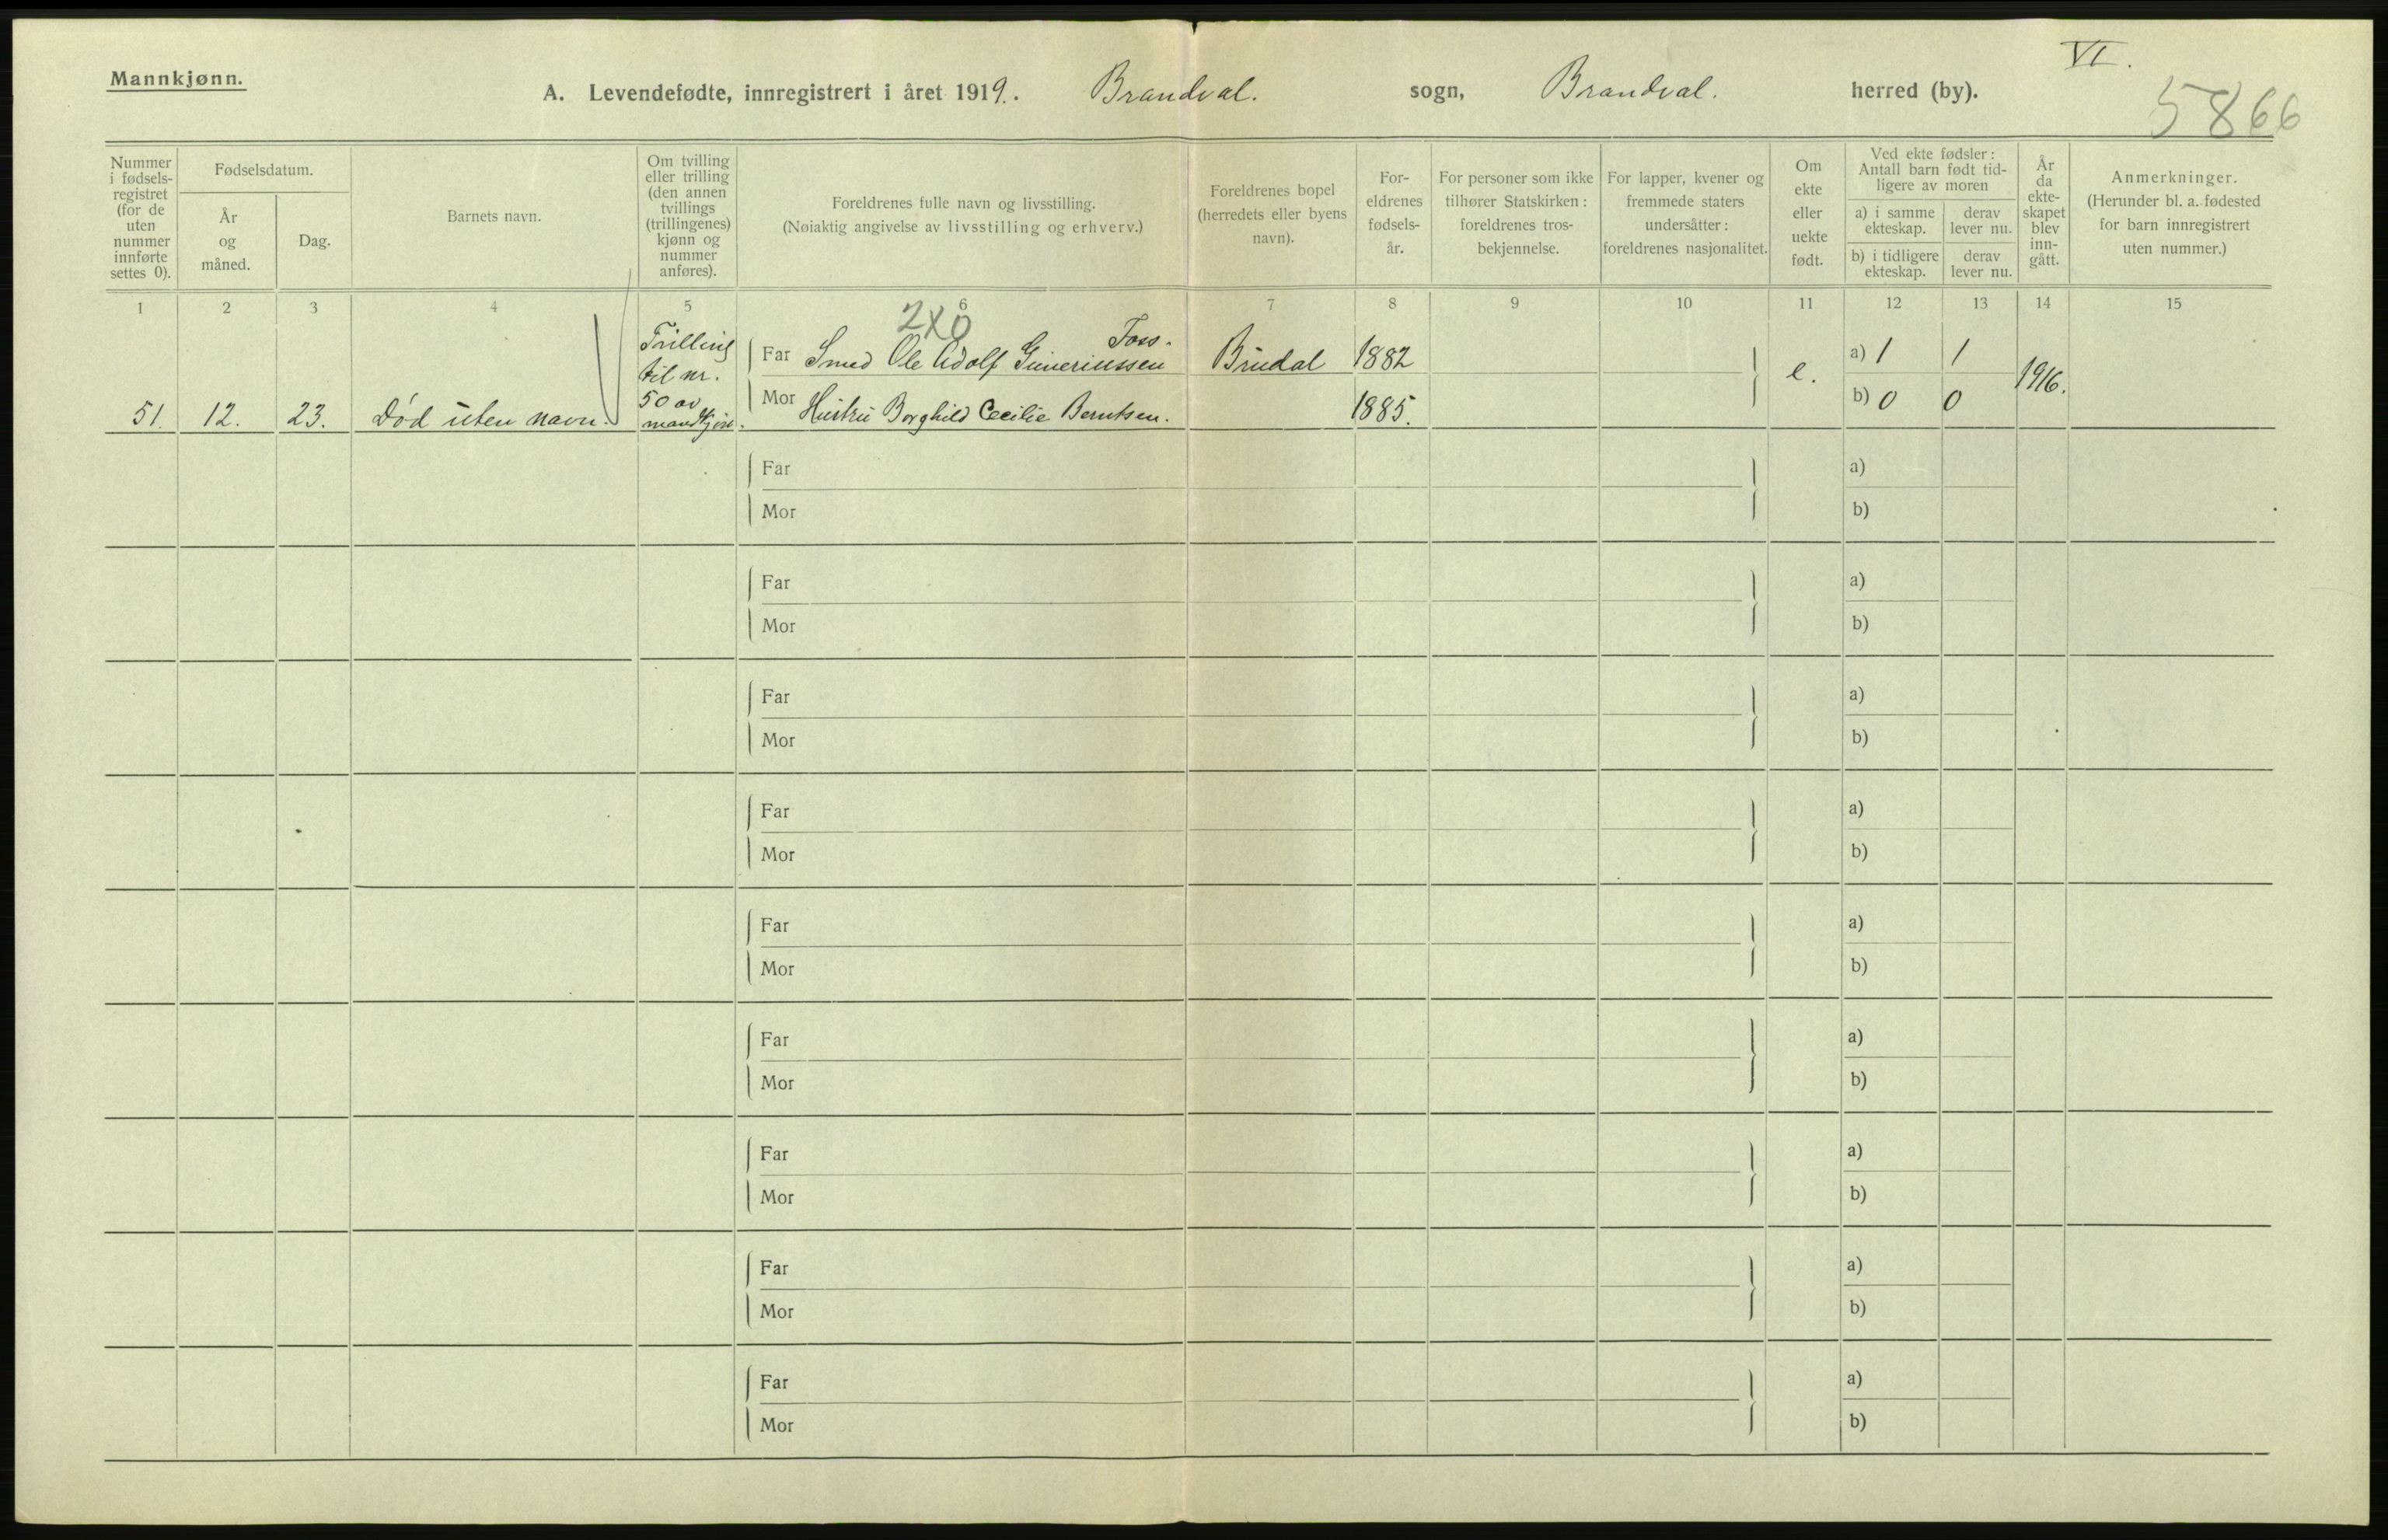 Mannkjønn.
VI.
A. Levendefødte, innregistrert i året 1919. Brandval. sogn, Brandval. herred (by).
5866
Nummer
i fødsels-
registret
(for de
uten
nummer
innførte
settes 0).
Fødselsdatum.
År
og
måned.
Dag.
Barnets navn.
Om tvilling
eller trilling
(den annen
tvillings
(trillingenes)
kjønn og
nummer
anføres).
Foreldrenes fulle navn og livsstilling.
(Nøiaktig angivelse av livsstilling og erhverv.)
Foreldrenes bopel
(herredets eller byens
navn).
For-
eldrenes
fødsels-
år.
For personer som ikke
tilhører Statskirken:
foreldrenes tros-
bekjennelse.
For lapper, kvener og
fremmede staters
undersåtter:
foreldrenes nasjonalitet.
Om
ekte
eller
uekte
født.
Ved ekte fødsler:
Antall barn født tid-
ligere av moren
a) i samme
ekteskap.
derav
lever nu.
b) i tidligere
ekteskap.
derav
lever nu.
År
da
ekte-
skapet
blev
inn-
gått.
Anmerkninger.
(Herunder bl. a. fødested
for barn innregistrert
uten nummer.)
1 2 3 4 5 6 7 8 9 10 11 12 13 14 15
2X0
51. 12. 23. Død uten navn.
Trilling
til nr.
50 av
mandkjøn.
Foss.
Far Smed Ole Adolf Guneriussen Brudal 1882 e. a) 1 1 1916.
Mor Hustru Borghild Cecilie Berntsen. 1885. b) 0 0
Far a)
Mor b)
Far a)
Mor b)
Far a)
Mor b)
Far a)
Mor b)
Far a)
Mor b)
Far a)
Mor b)
Far a)
Mor b)
Far a)
Mor b)
Far a)
Mor b)